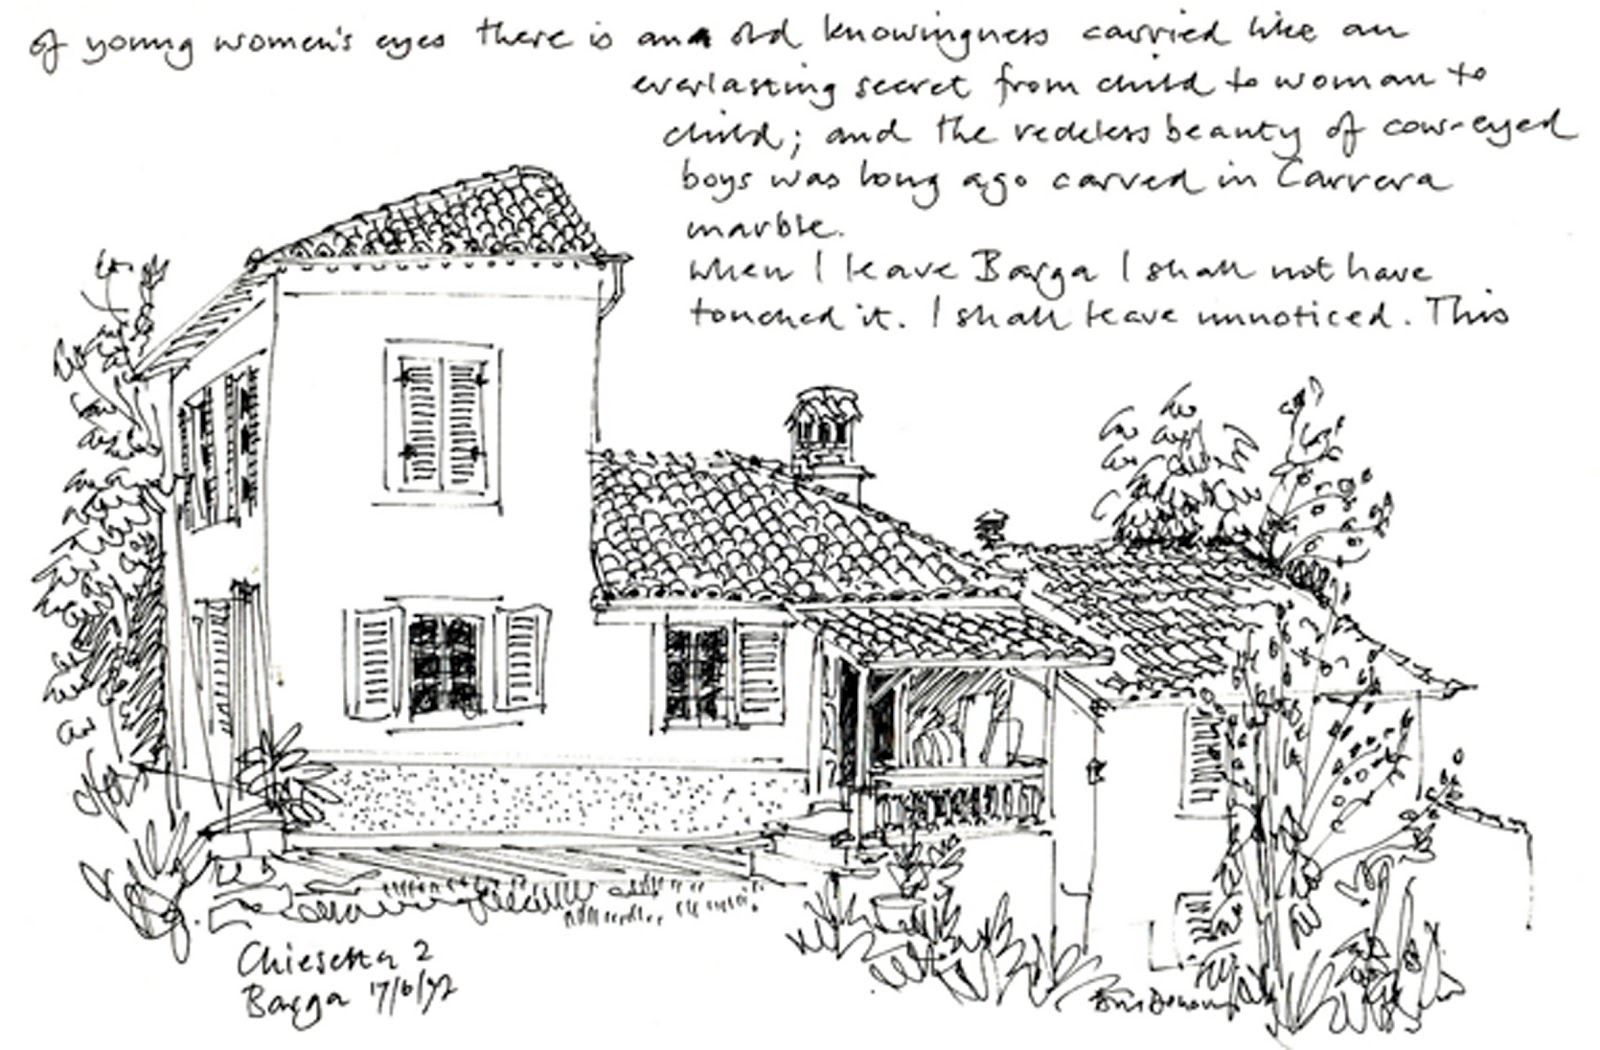 of young women's eyes there is an old knowingness carried like an
everlasting secret from child to woman to
child; and the reckless beauty of cow-eyed
boys was long ago carved in Carrera
marble.
When I leave Barga I shall not have
touched it. I shall leave unnoticed. This
Chiesetta 2
Barga 17/6/92